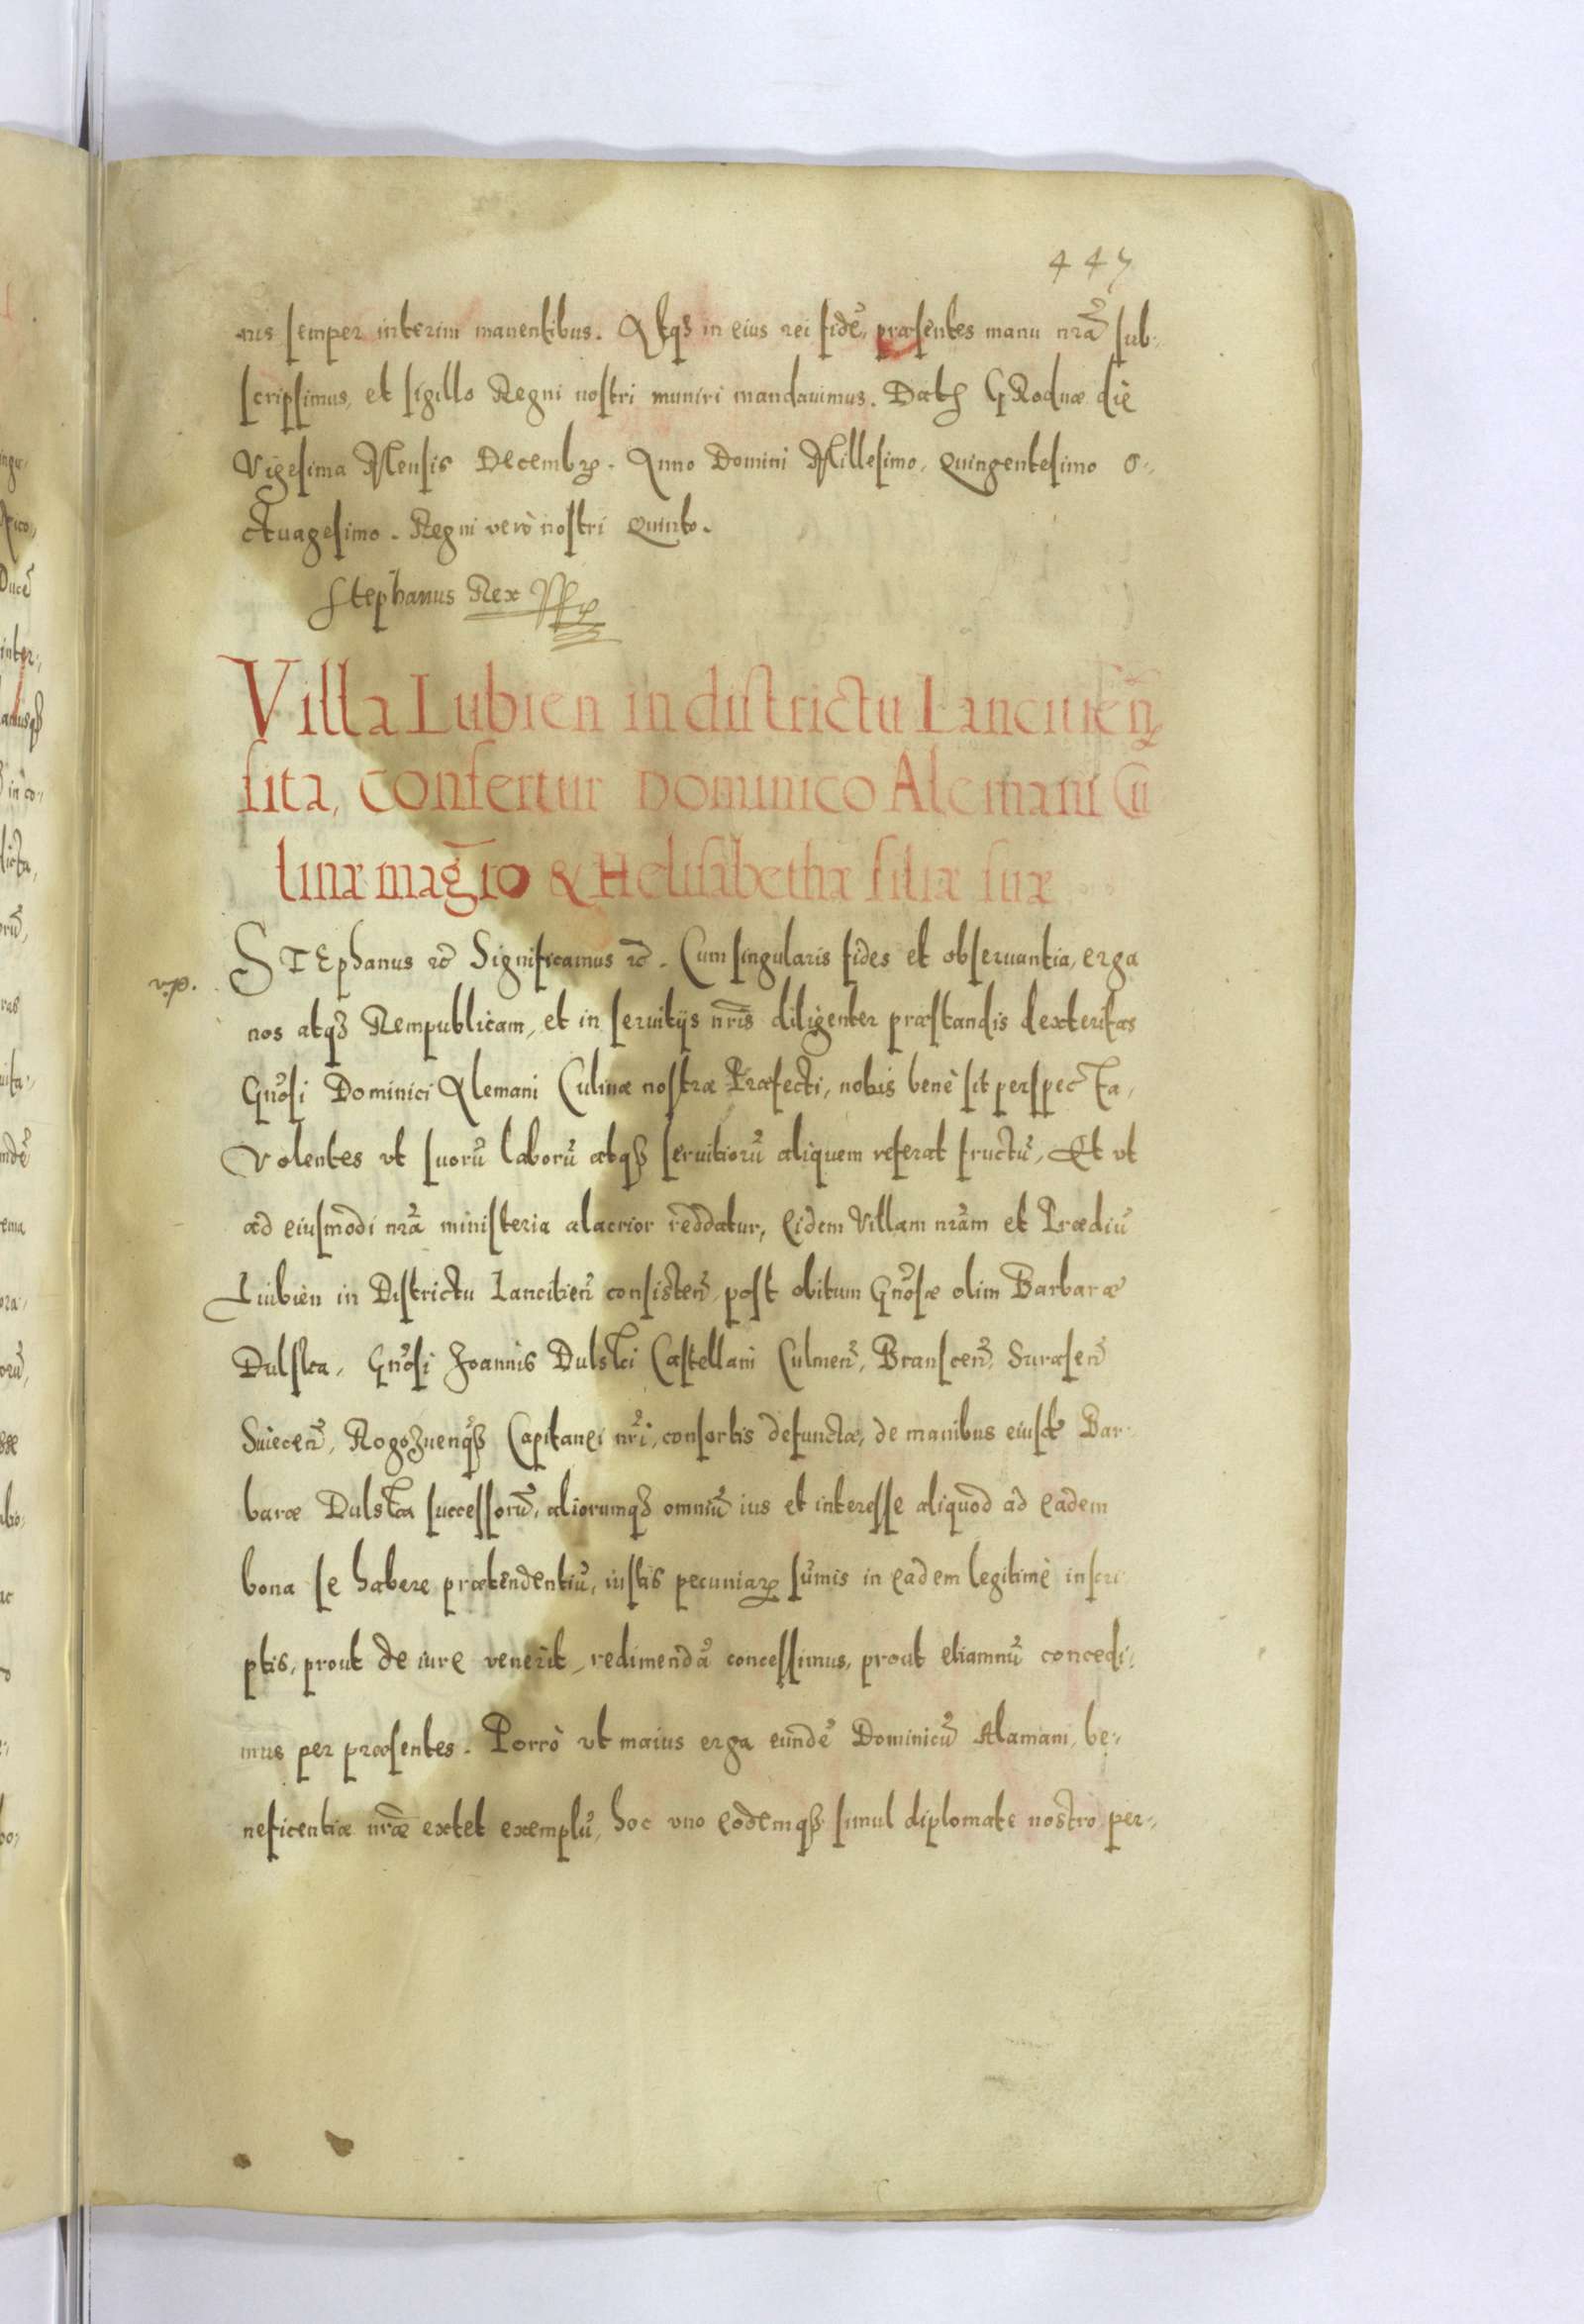 447
nis semper interim manentibus. Atq3 in eius rei fidē, præsentes manu nrã sub:
scripsimus, et sigillo Regni nostri muniri mandauimus. Dat₃ GRodnæ die
Vigesima Mensis Decembꝝ. Anno Domini Millesimo, Quingentesimo o:
ctuagesimo. Regni verò nostri Quinto.
Stephanus Rex
Villa Lubien in districtu Lancitieñ
sita, confertur Dominico Alemani Cu
linæ mag̃ro & Helisabethæ filiæ suæ
v.p.
STEphanus ꝛc̃ Significamus ꝛc̃. Cum singularis fides et obseruantia, erga
nos atq3 Rempublicam, et in seruitijs nr̃is diligenter præstandis dexteritas
Gñosi Dominici Alemani Culinæ nostræ Præfecti, nobis benè sit perspecta,
Volentes vt suorũ laborũ atq3 seruitiorũ aliquem referat fructũ, Et vt
ad eiusmodi nrã ministeria alacrior reddatur, Eidem Villam nrãm et Prædiũ
Lubien in Districtu Lancitieñ consisteñ, post obitum Gñosæ olim Barbaræ
Dulska, Gñosi Joannis Dulski Castellani Culmeñ, Bransceñ, Suraseñ
Suieceñ, Rogoznenq̃3 Capitanei nr̃i, consortis defunctæ, de manibus eiusd̃ Bar
baræ Dulska successorũ, aliorumq3 omniũ ius et interesse aliquod ad eadem
bona se habere prætendentiũ, iustis pecuniaꝝ sũmis in eadem legitimè inscri
ptis, prout de iure venerit, redimendã concessimus, prout etiamnũ concedi:
mus per præsentes. Porrò vt maius erga eundẽ Dominicũ Alamani, be:
neficentiæ nr̃æ extet exemplũ, hoc vno eodemq3 simul diplomate nostro per: